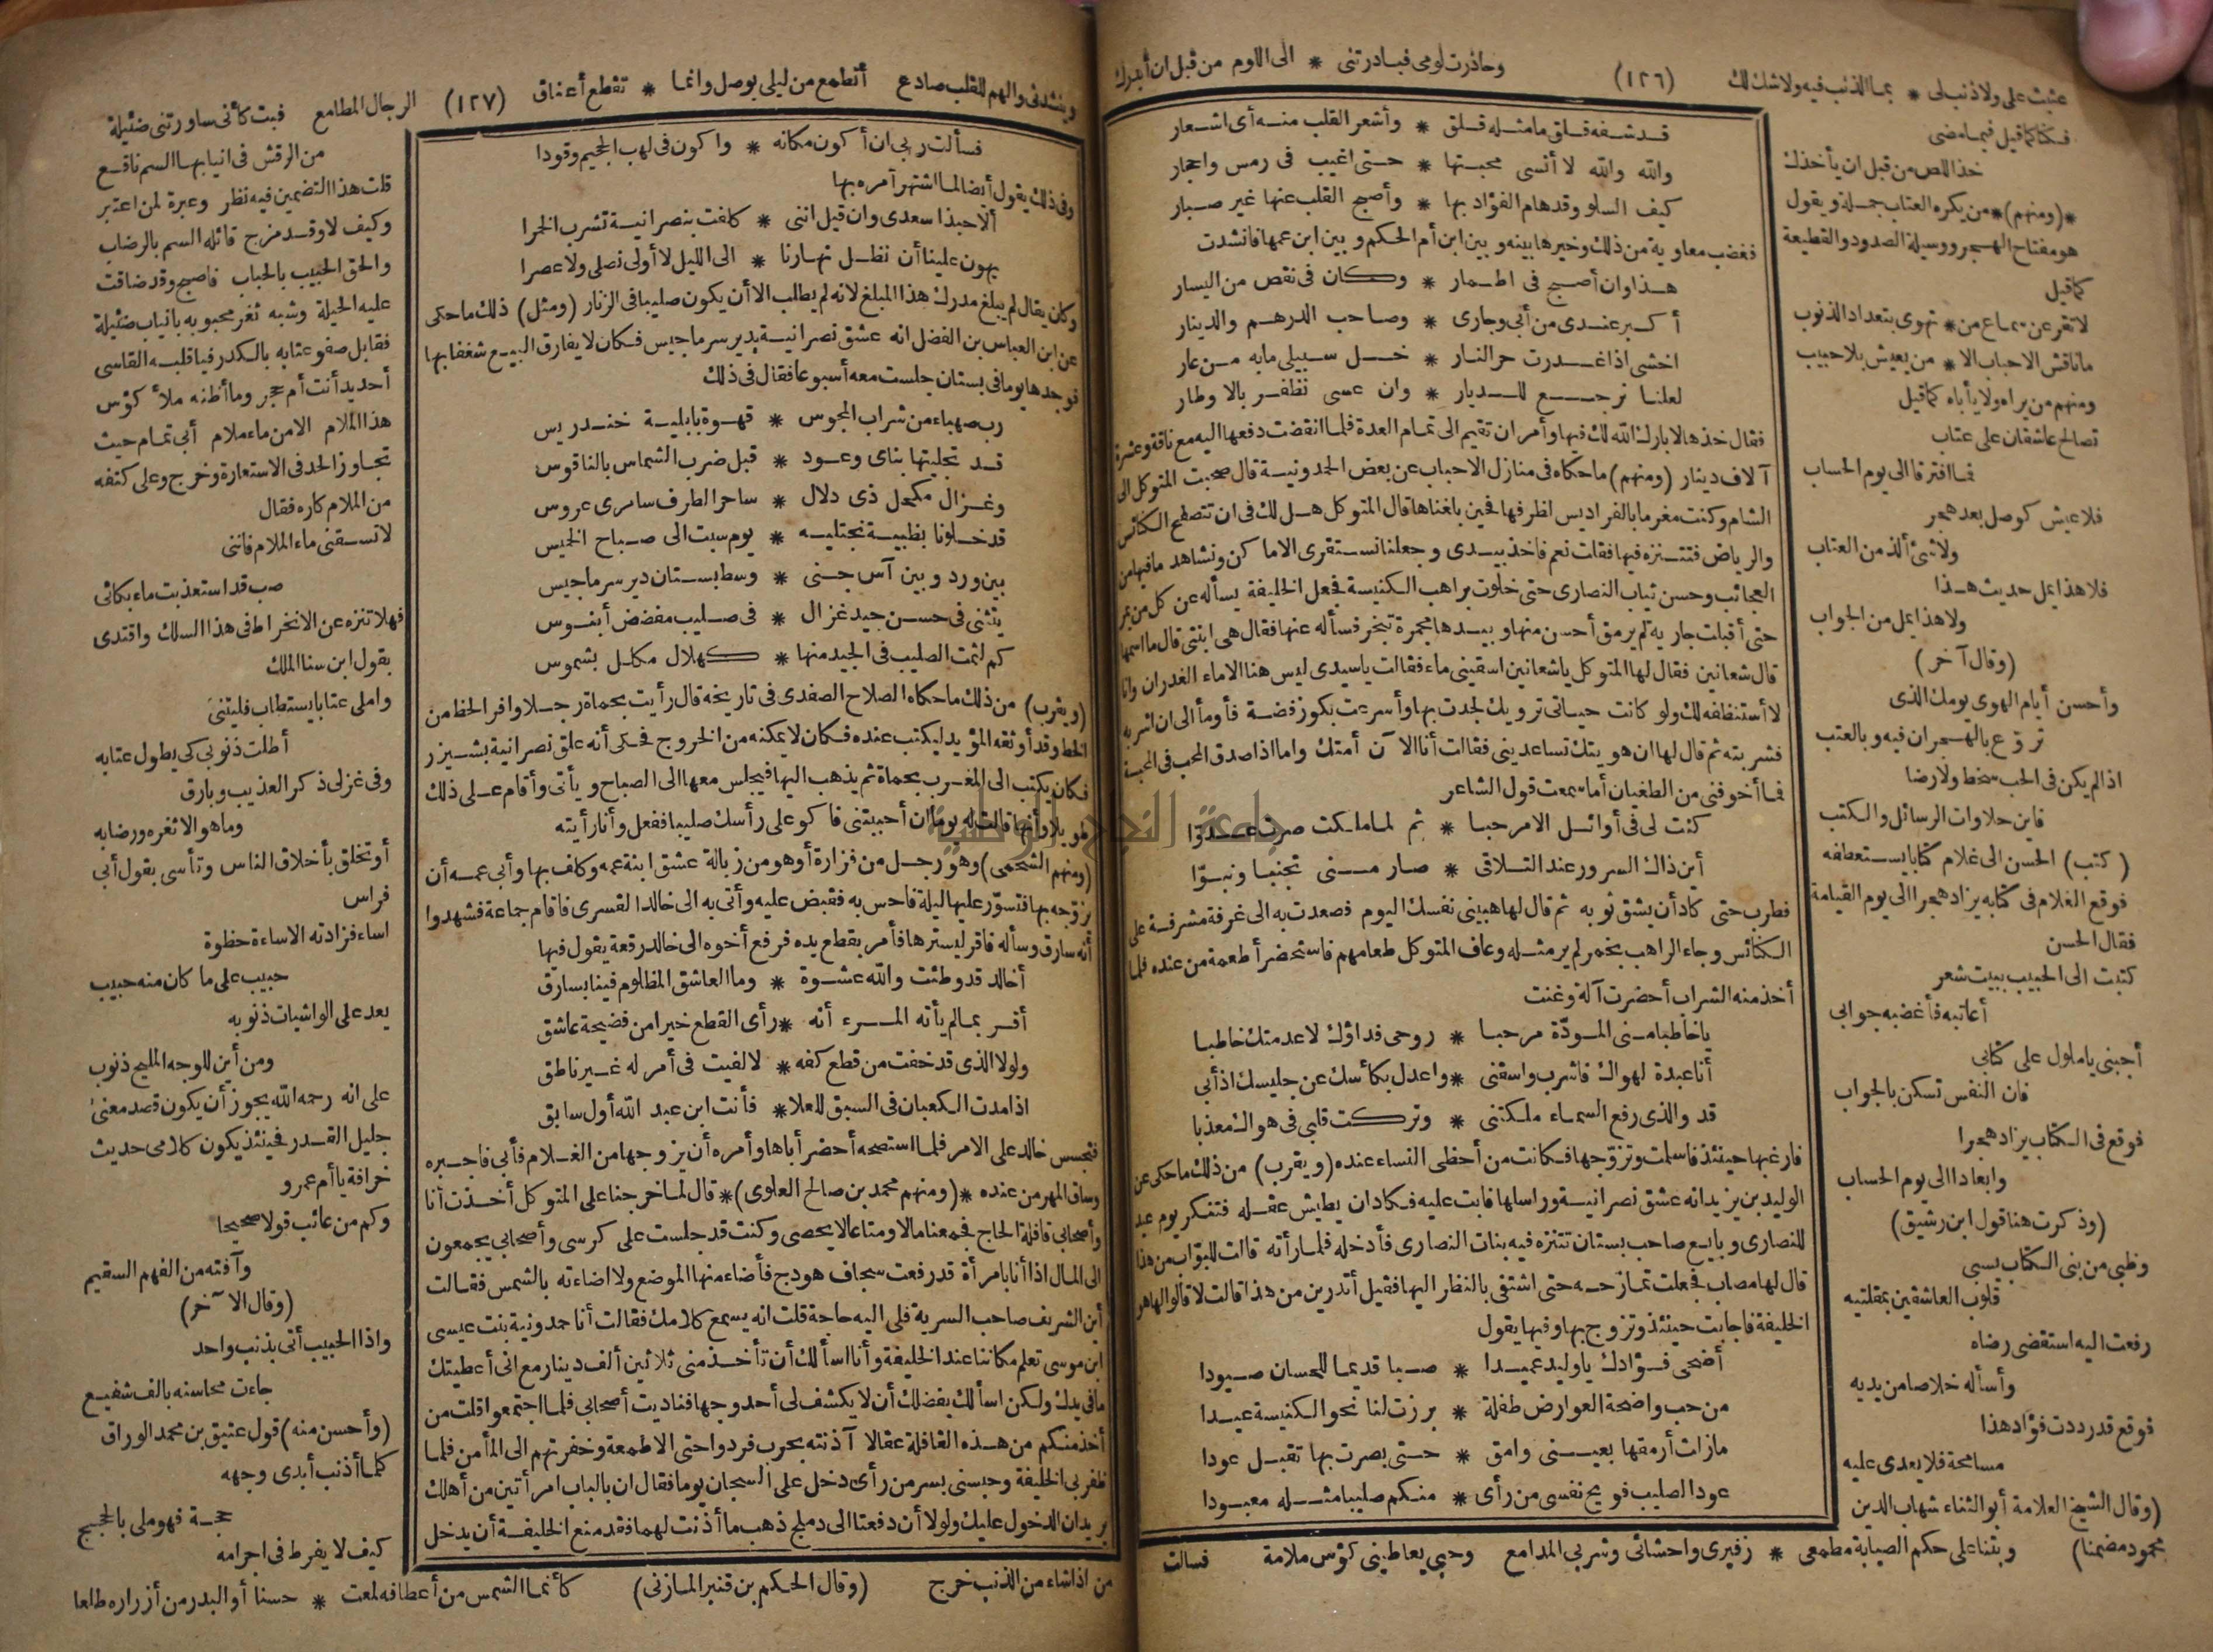 وحاذرت لومى فبادرتنى * الى اللوم من قبل ان أبدرك
(١٢٦)
عتبت على ولا ذنب لى * بما الذنب فيه ولا شك لك
فكنا كما قيل فيما مضى
خذ اللص من قبل ان يأخذك
*(ومنهم)* من يكره العتاب جملة ويقول
هو مفتاح الهجر ووسيلة الصدود والقطيعة
كما قيل
ومنهم من يراه ولا يأباه كما قيل
تصالح عاشقان على عتاب
فما افترقا الى يوم الحساب
فلا عيش كوصل بعد هجر
ولا شئ ألذ من العتاب
فلا هذا يمل حديث هذا
ولا هذا يمل من الجواب
(وقال آخر)
وأحسن أيام الهوى يومك الذى
تروّع بالهجران فيه وبالعتب
اذا لم يكن فى الحب سخط ولا رضا
فاين حلاوات الرسائل والكتب
(كتب) الحسن الى غلام كتابا يستعطفه
فوقع الغلام فى كتابه يزاد هجرا الى يوم القيامة
فقال الحسن
كتبت الى الحبيب ببيت شعر
أعاتبه فأغضبه جوابى
أجبنى ياملول على كتابى
فان النفس تسكن بالجواب
فوقع فى الكتاب يزاد هجرا
وابعادا الى يوم الحساب
(وذكرت هنا قول ابن رشيق)
وظبى من بنى الكتاب يسبى
قلوب العاشقين بمقلتيه
رفعت اليه استقضى رضاه
وأسأله خلاصا من يديه
فوقع قد رددت فؤاد هذا
مسامحة فلا يعدى عليه
(وقال الشيخ العلامة أبو الثناء شهاب الدين
محمود مضمنا) وبتنا على حكم الصبابة مطمعى * زفيرى واحشائى وشربى المدامع وحبى يعاطينى كؤس ملامة فسالت
قد شفه قلق ما مثله قلق * وأشعر القلب منه أى اشعار
والله والله لا أنسى محبتها * حتى اغيب فى رمس واحجار
كيف السلو وقد هام الفؤاد بها * وأصبح القلب عنها غير صبار
فغضب معاوية من ذلك وخيرها بينه وبين ابن أم الحكم وبين ابن عمها فانشدت
هذا وان أصبح فى اطمار * وكان فى نقص من اليسار
أكبر عندى من أبى وجارى * وصاحب الدرهم والدينار
اخشى اذا غدرت حر النار * خل سبيلى مابه من عار
لعلنا نرجع للديار * وان عسى نظفر بالاوطار
فقال خذها لا بارك الله لك فيها وأمر ان تقيم الى تمام العدة فلما انقضت دفعها اليه مع ناقة وعشرة
آلاف دينار (ومنهم) ما حكاه فى منازل الاحباب عن بعض الحمدونية قال صحبت المتوكل الى
الشام وكنت مغرما بالفراديس اظرفها فحين بلغناها قال المتوكل هل لك فى ان نتصفح الكنائس
والرياض فنتنزه فيها فقلت نعم فاخذ بيدى وجعلنا نستقرى الاماكن ونشاهد ما فيها من
العجائب وحسن ثياب النصارى حتى خلوت براهب الكنيسة فجعل الخليفة يسأله عن كل من يمر
حتى أقبلت جارية لم يرمق أحسن منها وبيدها مجمرة تبخر فسأله عنها فقال هى ابنتى قال ما اسمها
قال شعانين فقال لها المتوكل ياشعانين اسقينى ماء فقالت ياسيدى ليس هنا الا ماء الغدران وانا
لا أستنظفه لك ولو كانت حياتى ترويك لجدت بها وأسرعت بكوز فضة فأومأ الى ان اشربه
فشربته ثم قال لها ان هويتك تساعدينى فقالت أنا الآن أمتك واما اذا صدق المحب فى المحبة
فما أخوفنى من الطغيان أما سمعت قول الشاعر
كنت لى فى أوائل الامر حبا * ثم لما ملكت صرت عدوّا
أين ذاك السرور عند التلاقى * صار منى تجنبا ونبوّا
فطرب حتى كاد أن يشق ثوبه ثم قال لها هبينى نفسك اليوم فصعدت به الى غرفة مشرفة على
الكنائس وجاء الراهب بخمر لم ير مثله وعاف المتوكل طعامهم فاستحضر أطعمة من عنده فلما
أخذ منه الشراب أحضرت آلة وغنت
ياخاطبا منى المودّة مرحبا * روحى فداؤك لا عدمتك خاطبا
أنا عبدة لهواك فاشرب واسقنى * واعدل بكأسك عن جليسك اذ أبى
قد والذى رفع السماء ملكتنى * وتركت قلبى فى هواك معذبا
فارغبها حينئذ فاسلمت وتزوّجها فكانت من أحظى النساء عنده (ويقرب) من ذلك ما حكى عن
الوليد بن يزيد انه عشق نصرانية وراسلها فابت عليه فكاد ان يطيش عقله فتنكر يوم عيد
للنصارى وبايع صاحب بستان تتنزه فيه بنات النصارى فأدخله فلما رأته قالت للبوّاب من هذا
قال لها مصاب فجعلت تمازحه حتى اشتفى بالنظر اليها فقيل أتدرين من هذا قالت لا قالوا لها هو
الخليفة فاجابت حينئذ وتزوج بها وفيها يقول
أضحى فؤادك ياوليد عميدا * صبا قديما للحسان صيودا
من حب واضحة العوارض طفلة * برزت لنا نحو الكنيسة عيدا
مازلت أرمقها بعينى وامق * حتى بصرت بها تقبل عودا
عود الصليب فويح نفسى من رأى * منكم صليبا مثله معبودا
وينشدنى والهم للقلب صادع أتطمع من ليلى بوصل وانما * تقطع أعناق (١٢٧) الرجال المطامع فبت كأنى ساورتنى ضئيلة
فسألت ربى ان أكون مكانه * واكون فى لهب الجحيم وقودا
وفى ذلك يقول أيضا لما اشتهر أمره بها
ألا حبذا سعدى وان قيل اننى * كلفت بنصرانية تشرب الخمرا
يهون علينا أن نظل نهارنا * الى الليل لا أولى نصلى ولا عصرا
وكان يقال لم يبلغ مدرك هذا المبلغ لانه لم يطلب الا أن يكون صليبا فى الزنار (ومثل) ذلك ما حكى
عن ابن العباس بن الفضل انه عشق نصرانية بدير سرماجيس فكان لا يفارق البيع شغفا بها
فوجدها يوما فى بستان جلست معه أسبوعا فقال فى ذلك
رب صهباء من شراب المجوس * قهوة بابلية خندريس
قد تجليتها بناى وعود * قبل ضرب الشماس بالناقوس
وغزال مكحل ذى دلال * ساحر الطرف سامرى عروس
قد خلونا بظبية نجتليه * يوم سبت الى صباح الخميس
بين ورد وبين آس جنى * وسط بستان دير سرماجيس
يتثنى فى حسن جيد غزال * فى صليب مفضض أبنوس
كم لثمت الصليب فى الجيد منها * كهلال مكلل بشموس
(ويقرب) من ذلك ما حكاه الصلاح الصفدى فى تاريخه قال رأيت بحماة رجلا وافر الحظ من
الخط وقد أوثقه المؤيد ليكتب عنده فكان لا يمكنه من الخروج فحكى أنه علق نصرانية بشيزر
فكان يكتب الى المغرب بحماة ثم يذهب اليها فيجلس معها الى الصباح ويأتى وأقام على ذلك
طويلا وأنها قالت له يوما ان أحببتنى فاكو على رأسك صليبا ففعل وأنا رأيته
(ومنهم الشحمى) وهو رجل من فزارة أو هو من زبالة عشق ابنة عمه وكلف بها وأبى عمه أن
يزوّجه بها فتسوّر عليها ليلة فاحس به فقبض عليه وأتى به الى خالد القسرى فاقام جماعة فشهدوا
أنه سارق وسأله فاقر ليسترها فأمر بقطع يده فرفع أخوه الى خالد رقعة يقول فيها
أخالد قد وطئت والله عشوة * وما العاشق المظلوم فينا بسارق
أقر بما لم يأته المرء أنه * رأى القطع خيرا من فضيحة عاشق
ولولا الذى قد خفت من قطع كفه * لالفيت فى أمر له غير ناطق
اذا مدت الكعبان فى السبق للعلا * فأنت ابن عبد الله أول سابق
فتجسس خالد على الامر فلما استصحه أحضر أباها وأمره أن يزوجها من الغلام فأبى فاجبره
وساق المهر من عنده *(ومنهم محمد بن صالح العلوى)* قال لما خرجنا على المتوكل أخذت أنا
وأصحابى قافلة الحاج فجمعنا مالا ومتاعا لا يحصى وكنت قد جلست على كرسى وأصحابى يجمعون
الى المال اذا أنا بامرأة قد رفعت سجاف هودج فأضاء منها الموضع ولا اضاءته بالشمس فقالت
أين الشريف صاحب السرية فلى اليه حاجة قلت انه يسمع كلامك فقالت أنا حمدونية بنت عيسى
ابن موسى تعلم مكاننا عند الخليفة وأنا اسألك أن تأخذ منى ثلاثين ألف دينار مع انى أعطيتك
ما فى يدك ولكن اسألك بفضلك أن لا يكشف لى أحد وجها فناديت أصحابى فلما اجتمعوا قلت من
أخذ منكم من هذه القافلة عقالا آذنته بحرب فردوا حتى الاطعمة وخفرتهم الى المأمن فلما
ظفر بى الخليفة وحبسنى بسر من رأى دخل على السجان يوما فقال ان بالباب امرأتين من أهلك
يريدان الدخول عليك ولولا أن دفعتا الى دملج ذهب ما أذنت لهما فقد منع الخليفة أن يدخل
من الرقش فى انيابها السم ناقع
قلت هذا التضمين فيه نظر وعبرة لمن اعتبر
وكيف لا وقد مزج قائله السم بالرضاب
والحق الحبيب بالحباب فاصبح وقد ضاقت
عليه الحيلة وشبه ثغر محبوبه بانياب ضئيلة
فقابل صفو عتابه بالكدر فيا قلبه القاسى
أحديد أنت أم حجر وما أظنه ملأ كؤس
هذا الملام الا من ماء ملام أبى تمام حيث
تجاوز الحد فى الاستعارة وخرج وعلى كتفه
من الملام كاره فقال
لا تسقنى ماء الملام فاننى
صب قد استعذبت ماء بكائى
فهلا تنزه عن الانخراط فى هذا السلك واقتدى
بقول ابن سنا الملك
واملى عتابا يستطاب فليتنى
أطلت ذنوبى كى يطول عتابه
وفى غزلى ذكر العذيب وبارق
وما هو الا ثغره ورضابه
أو تخلق بأخلاق الناس وتأسى بقول أبى
فراس
اساء فزادته الاساءة حظوة
حبيب على ما كان منه حبيب
يعد على الواشيات ذنوبه
ومن أين للوجه المليح ذنوب
على انه رحمه الله يجوز أن يكون قصد معنى
جليل القدر فحينئذ يكون كلامى حديث
خرافة يا أم عمرو
وكم من عائب قولا صحيحا
وآفته من الفهم السقيم
(وقال الآخر)
واذا الحبيب أتى بذنب واحد
جاءت محاسنه بالف شفيع
(وأحسن منه) قول عتيق بن محمد الوراق
كلما أذنب أبدى وجهه
حجة فهو ملى بالحجج
كيف لا يفرط فى اجرامه
من اذا شاء من الذنب خرج (وقال الحكم بن قنبر المازنى) كأنما الشمس من أعطافه لمعت * حسنا أو البدر من أزراره طلعا